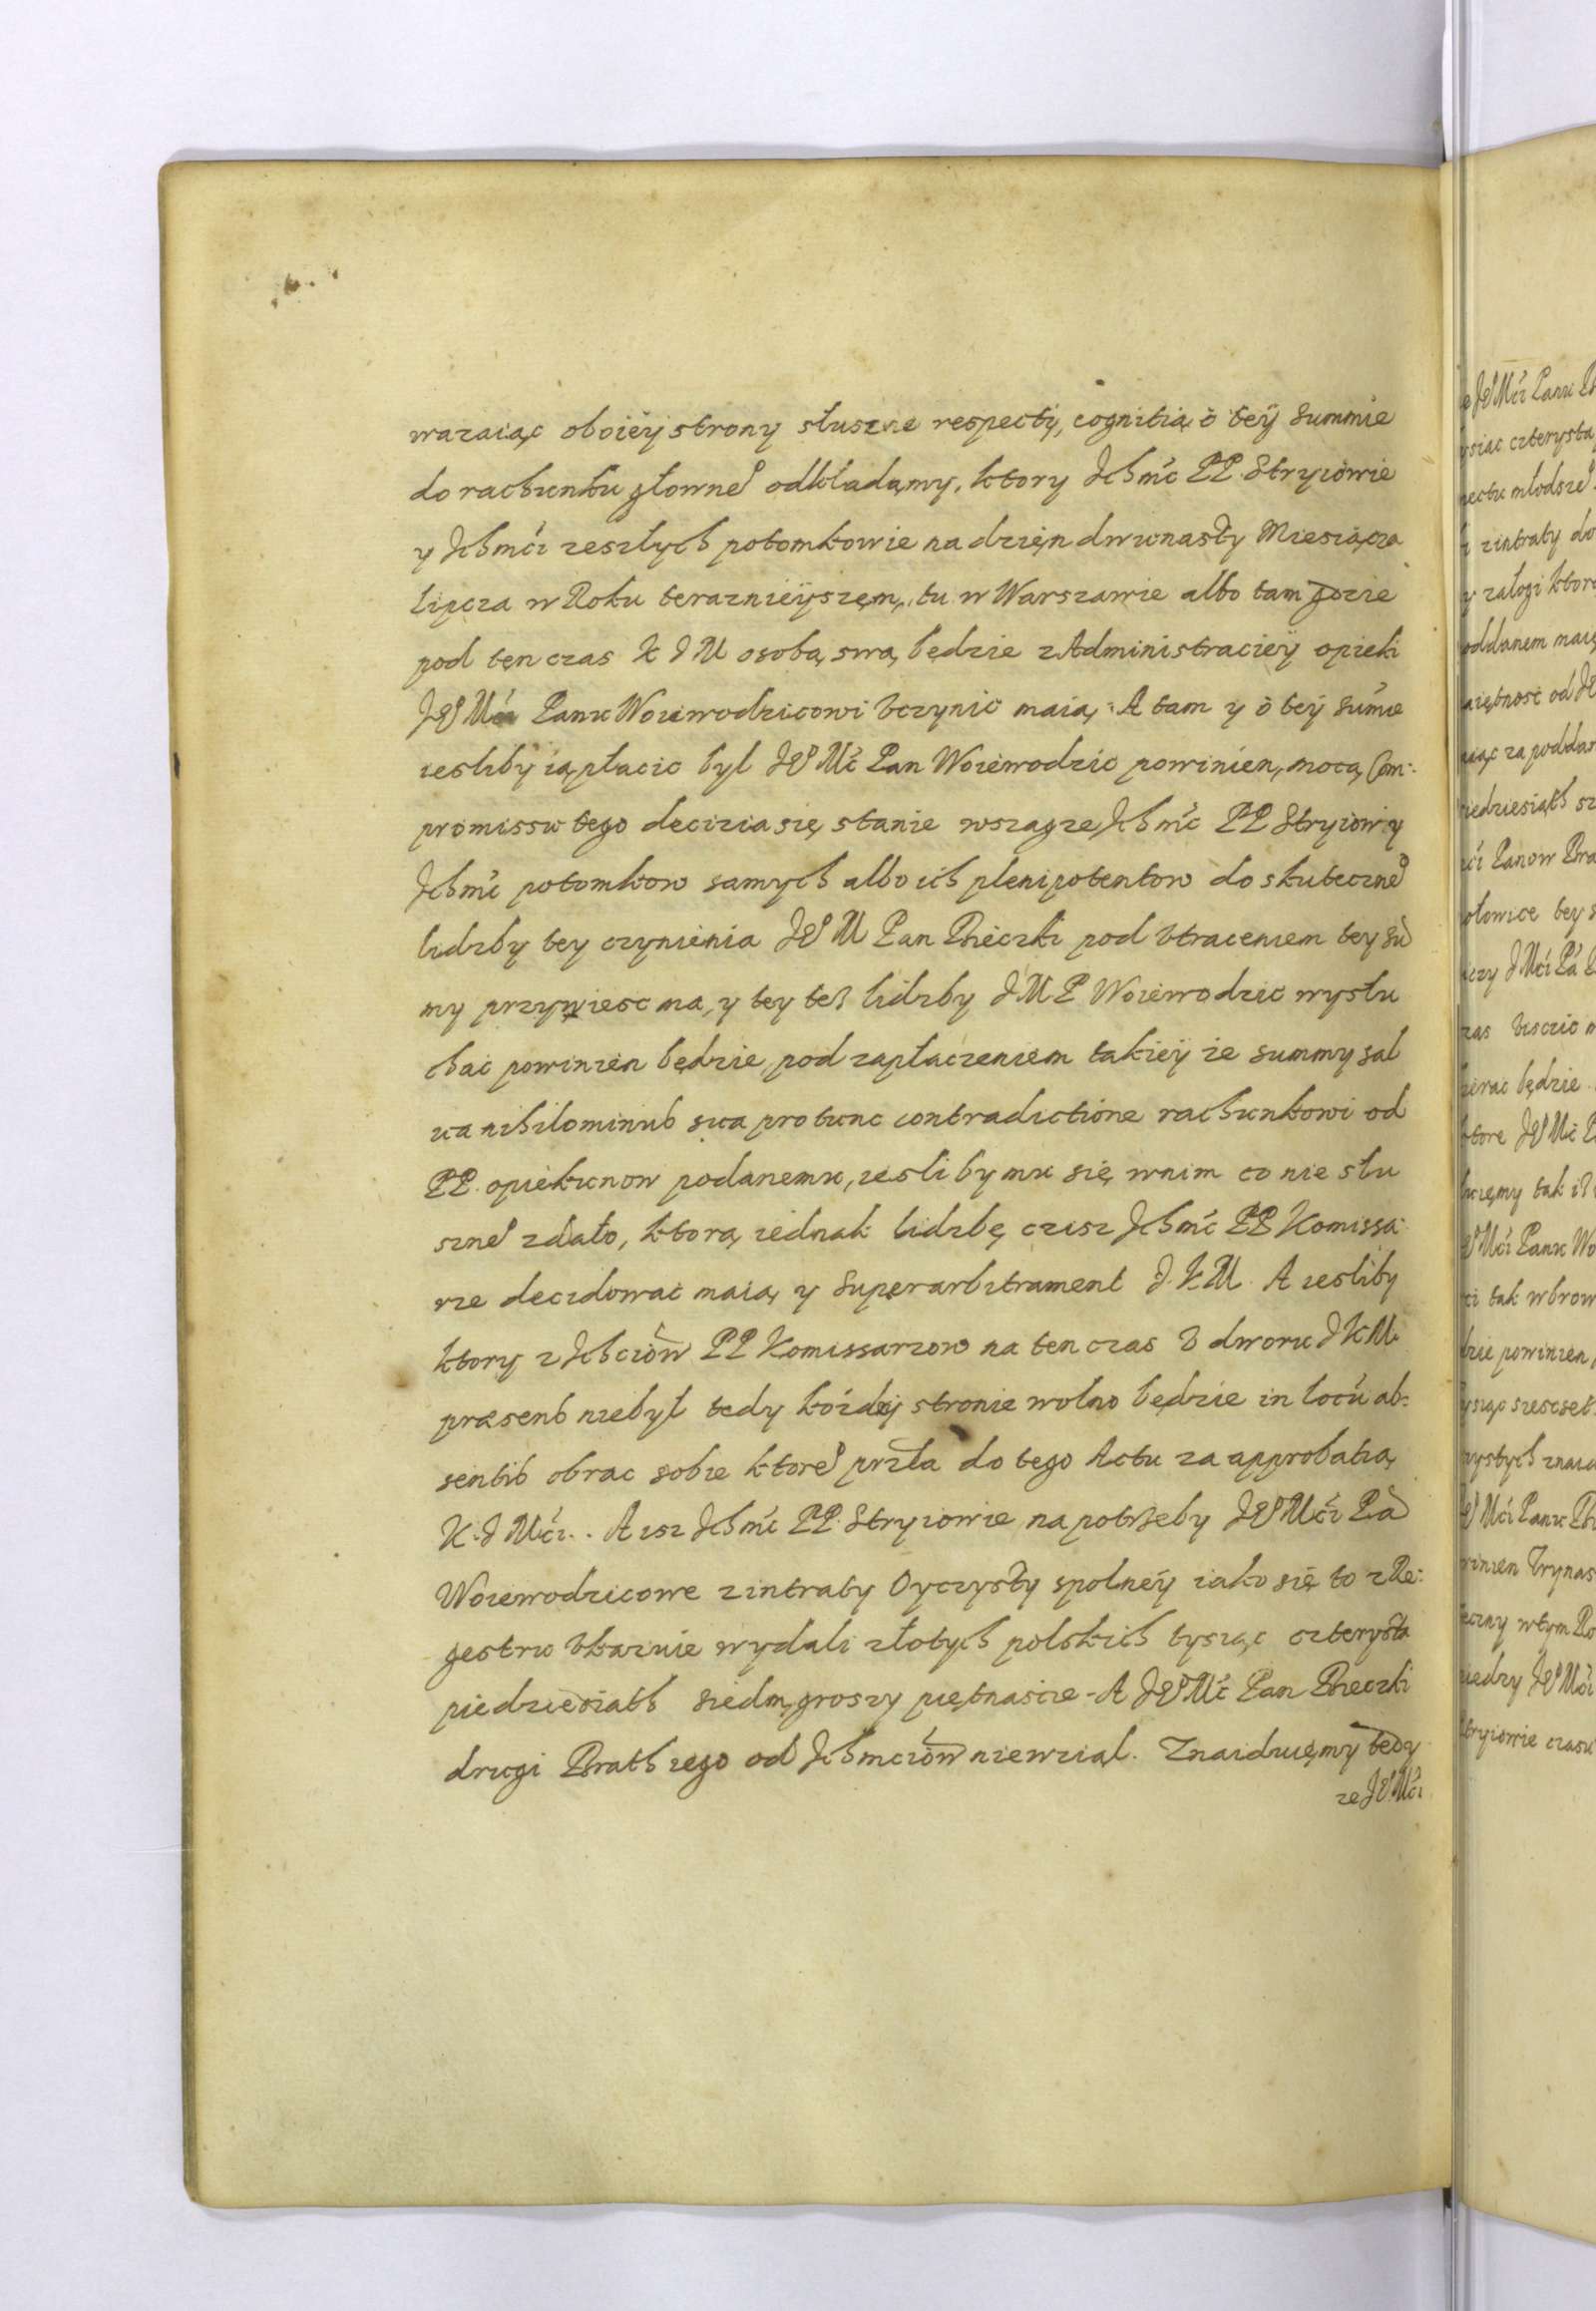 wazaiąc oboiey strony słuszne respecty, cognitią o tey Summie
do rachunku głowne° odkładamy, ktory Ichmć PP. Stryiowie
y Ichmći zeszłych potomkowie na dzięn dwunasty Miesiącza
lipcza w Roku teraznieyszęm, tu w Warszawie albo tam gdzie
pod tęn czas K J M osobą swą będzie z Administraciey opieki
Je° Mći Panu Woiewodzicowi vczynić maią. A tam y o tey sumie
iesliby ią płacic był Je° Mć Pan Woiewodzic powinien, mocą Com:
promissu tego decizia się stanie wszagze Ichmć PP Stryiow y
Ichmć potomkow samych albo ich plenipotentow do skuteczne°
lidzby tey czynienia Je° M Pan Rzeczki pod vtraceniem tey Su
my przywiesc ma, y tey tesz lidzby J M P Woiewodzic wysłu
chac powinien będzie, pod zapłaczeniem takiey ze summy sal
ua nihilominus sua pro tunc contradictione rachunkowi od
PP. opiekunow podanemu, iesliby mu się w nim co nie słu
szne° zdało, ktorą iednak lidzbę czisz Ichmć PP Komissa:
rze decidowac maią y Superarbitrament J. K. M. A iesliby
ktory z Ichciow PP Komissarzow na ten czas v dworu J K M
præsens niebył tedy kozdey stronie wolno będzie in locu ab:
sentis obrac sobie ktore° przła do tego Actu za approbatią
K. J Mći. A isz Ichmć PP. Stryiowie na potrzeby Je° Mći Pa
Woiewodzicowe z intraty Oyczysty spolney iako się to z Re:
gestru vkaznie wydali złotych polskich tysiąc czterysta
piedziesiath siedm, groszy piętnascie - A Je° Mć Pan Rzeczki
drugi Brath iego od Ichmciow niewzial. Znaiduięmy tedy
ze Je° Mći